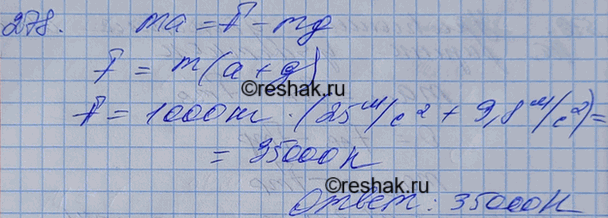 278. ma = F - mg
F = m(a+g)
©reshak.ru
F = 1000кг · (25 м/с² + 9,8 м/с²) =
= 35000Н
©reshak.ru
Ответ: 35000Н